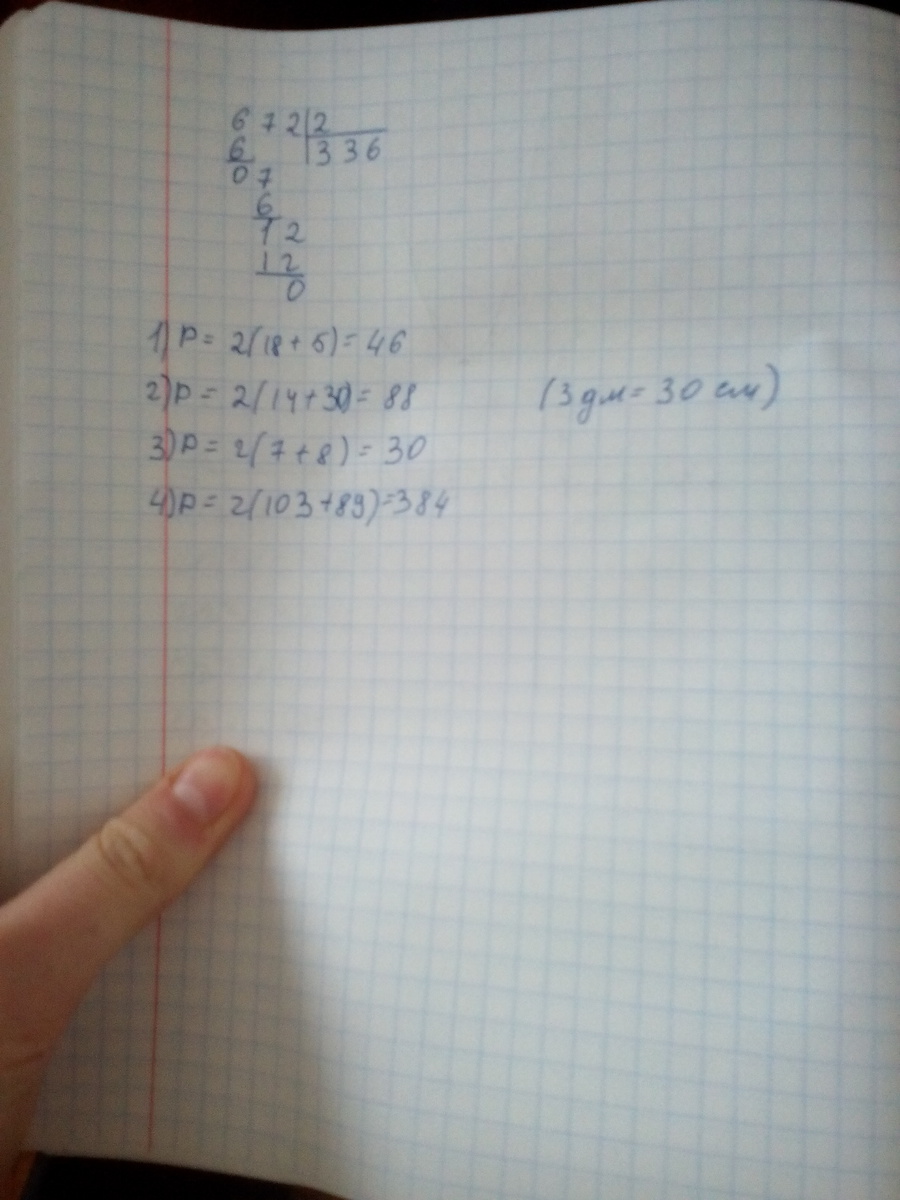 672|2
6 336
07
6
12
12
0
1) P = 2(18+5)= 46
2) P = 2(14+30)= 88 (3 дм = 30 см)
3) P = 2(7+8) = 30
4) P = 2(103+89)=384